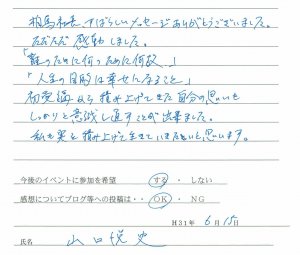 相馬社長、すばらしいメッセージありがとうございました。
ただただ感動しました。
「誰のために何のために何故、」
「人生の目的は幸せになること」
初受講から積み上げてきた自分の思いを
しっかりと意識し直すことが出来ました。
私も実を積み上げて生きていきたいと思います。
今後のイベントに参加を希望 する ・ しない
感想についてブログ等への投稿は・・ OK ・ NG
H31年 6月 15日
氏名 山口悦史